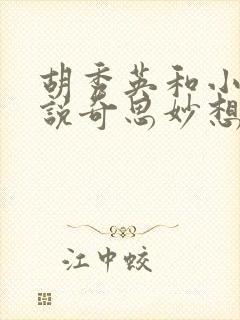 胡秀英和小
說奇思妙想
江中蛟